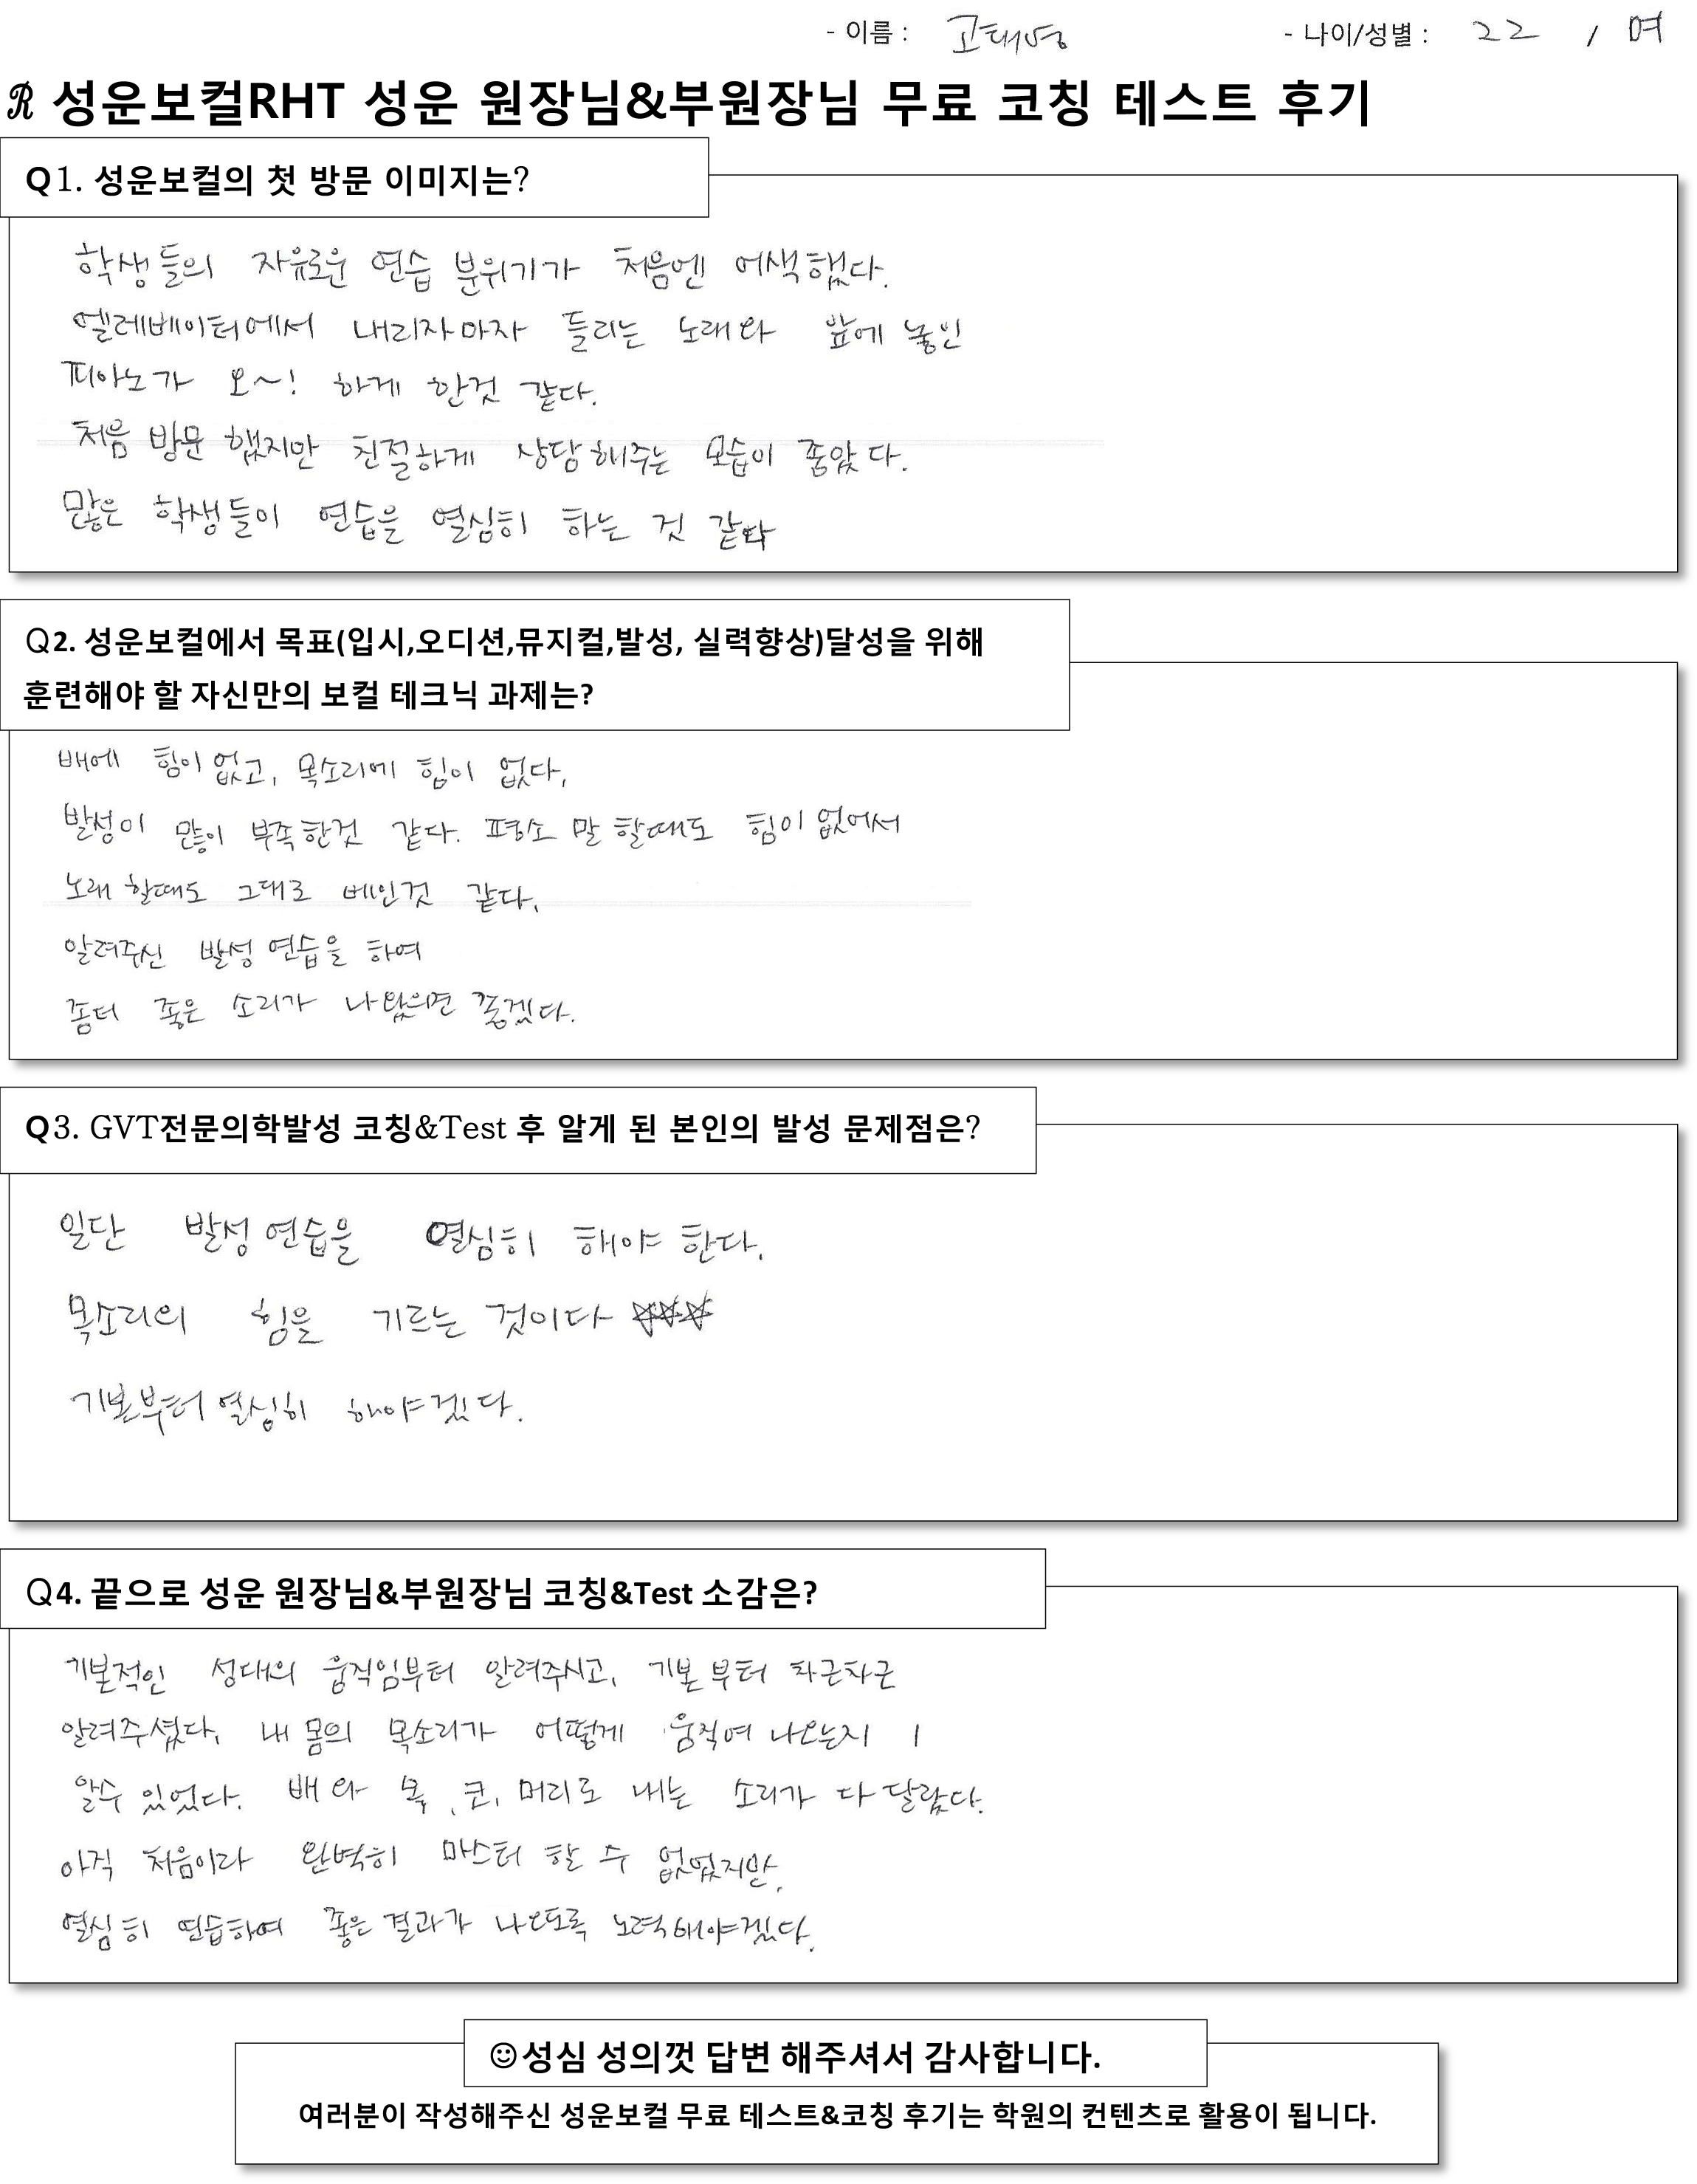 - 이름 : 고태영 - 나이/성별 : 22 / 여
R 성운보컬RHT 성운 원장님&부원장님 무료 코칭 테스트 후기
Q1. 성운보컬의 첫 방문 이미지는?
학생들의 자유로운 연습 분위기가 처음엔 어색했다.
엘레베이터에서 내리자마자 들리는 노래와 앞에 놓인
피아노가 오~! 하게 한것 같다.
처음 방문 했지만 친절하게 상담해주는 모습이 좋았다.
많은 학생들이 연습을 열심히 하는 것 같다
Q2. 성운보컬에서 목표(입시,오디션,뮤지컬,발성, 실력향상)달성을 위해
훈련해야 할 자신만의 보컬 테크닉 과제는?
배에 힘이 없고, 목소리에 힘이 없다,
발성이 많이 부족한것 같다. 평소 말 할때도 힘이 없어서
노래 할때도 그대로 베인것 같다,
알려주신 발성 연습을 하여
좀더 좋은 소리가 나왔으면 좋겠다.
Q3. GVT전문의학발성 코칭&Test 후 알게 된 본인의 발성 문제점은?
일단 발성 연습을 열심히 해야 한다.
목소리의 힘을 기르는 것이다 ☆☆☆
기본부터 열심히 해야겠다.
Q4. 끝으로 성운 원장님&부원장님 코칭&Test 소감은?
기본적인 성대의 움직임부터 알려주시고, 기본 부터 차근차근
알려주셨다, 내 몸의 목소리가 어떻게 움직여 나오는지
알수 있었다. 배와 목, 코, 머리로 내는 소리가 다 달랐다.
아직 처음이라 완벽히 마스터 할 수 없었지만,
열심히 연습하여 좋은 결과가 나오도록 노력해야겠다.
☺성심 성의껏 답변 해주셔서 감사합니다.
여러분이 작성해주신 성운보컬 무료 테스트&코칭 후기는 학원의 컨텐츠로 활용이 됩니다.